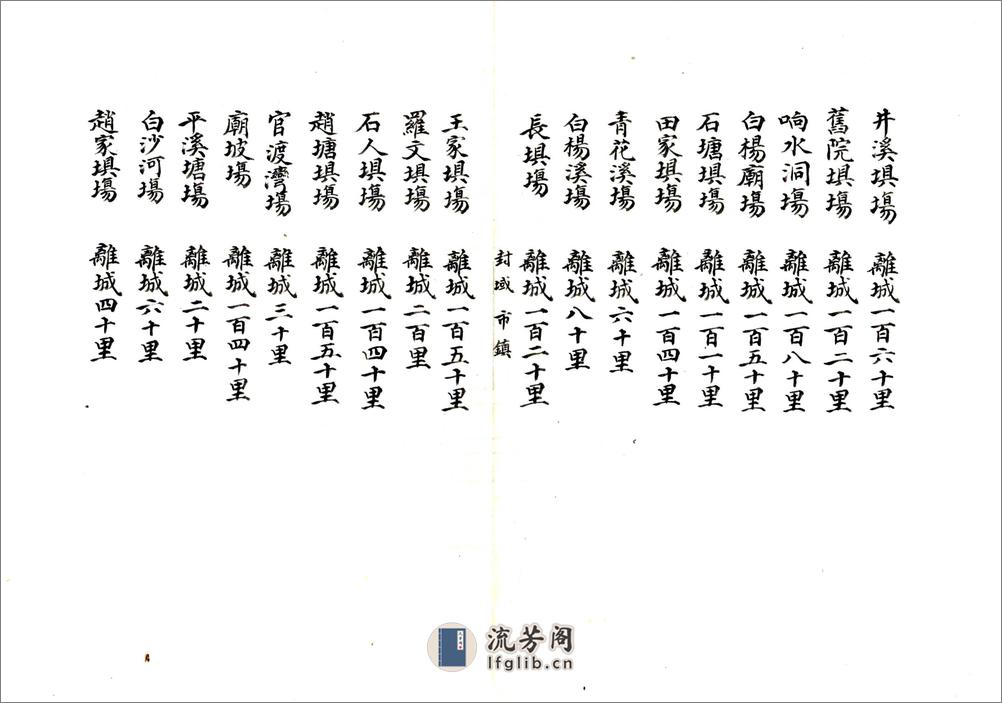 井溪埧塲 離城一百六十里
舊院埧塲 離城一百二十里
响水洞塲 離城一百八十里
白楊廟塲 離城一百五十里
石塘埧塲 離城一百一十里
田家埧塲 離城一百四十里
青花溪塲 離城六十里
白楊溪塲 離城八十里
長埧塲 離城一百二十里
封域 市鎮
王家埧塲 離城一百五十里
羅文埧塲 離城二百里
石人埧塲 離城一百四十里
趙塘埧塲 離城一百五十里
官渡灣塲 離城三十里
廟坡塲 離城一百四十里
平溪塘塲 離城二十里
白沙河塲 離城六十里
趙家埧塲 離城四十里
流芳阁
lfglib.cn